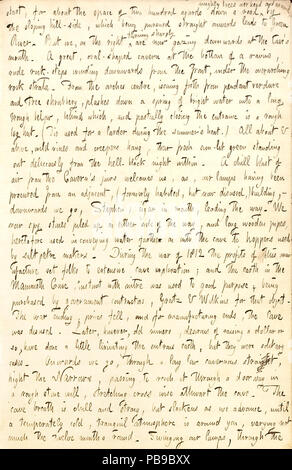 start, for about the space of two hundred yards down a gorge of
the sloping hill-side, which being pursued straight onwards leads to Green
River. But we, on the right, turning sharply are now gazing downwards at the Cave's
mouth. A great, oval-shaped cavern at the bottom of a ravine,
rude rock-steps winding downwards from the front, under the overarching
rock strata. From the arches centre, issuing forth from pendant verdure
and tree shrubbery, plashes down a spring of bright water into a long
rough helper, behind which, and partially closing the entrance is a rough
log hut. (Tis used for a larder during the summer's heat.) All about &
above, wild vines and evergreens hang, their fresh green standing
out deliciously from the hell black night within. A chill blast of
air from the Cavern's jaws welcomes us, as, our lamps having been
procured from an adjacent, (formerly habited, but now disused,) building,
downwards we go, Stephen, cigar in mouth, leading the way. We
now spy stones piled up on either side of the way and long wooden pipes,
heretofore used in conveying water into the cave to hoppers used
by salt petre makers. During the war of 1812 the profits of this manu-
facture set folks to extensive cave exploration; and the earth in the
Mammoth Cave, instinct with nitre was used to good purpose, being
purchased by government contractors, Gratz & Wilkins for that object.
The war ending, prices fell, and for manufacturing ends, the cave
was disused. Later, however, old miners, desirous of raising a dollar or
so, have done a little the entrance earth, but they were solitary
cases. Onwards we go, through a long low cavernous straight
hight the Narrows, passing to reach it through a door way in
a rough stone wall, stretching cross wise athwart the cave. To the
cave breath is chill and strong, but slackens as we advance, until
a temperately cold, tranquil atmosphere is around you varying not
much the twelve months round. Swinging our lamps, through the
PB9BXX